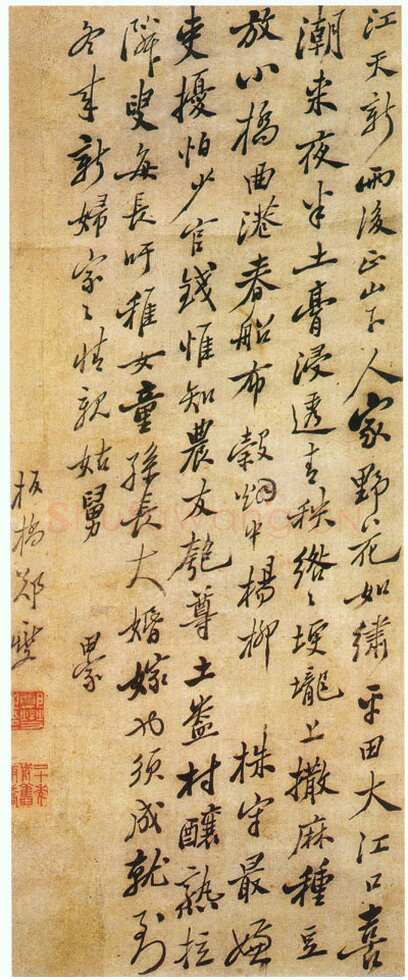 江天新雨後正山下人家野花如繡平田大江口喜
潮来夜半土膏浸透青秧絡〻埂壠上撒麻種豆
放小橋曲港春船布穀烟中楊柳 株守最嫌
吏擾怕少官錢惟知農友匏尊土盎村釀熟拉
隣叟每長吁稚女童孫長大婚嫁也須成就到
冬来新婦家〻情親姑舅 田家
板橋鄭燮